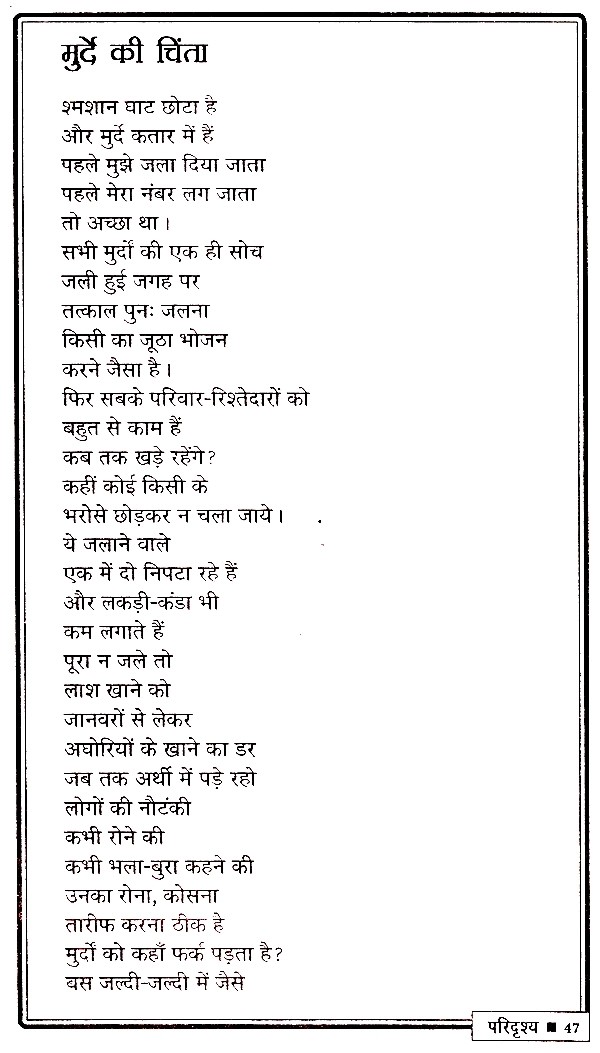 मुर्दे की चिंता
श्मशान घाट छोटा है
और मुर्दे कतार में हैं
पहले मुझे जला दिया जाता
पहले मेरा नंबर लग जाता
तो अच्छा था।
सभी मुर्दों की एक ही सोच
जली हुई जगह पर
तत्काल पुनः जलना
किसी का जूठा भोजन
करने जैसा है।
फिर सबके परिवार-रिश्तेदारों को
बहुत से काम हैं
कब तक खड़े रहेंगे?
कहीं कोई किसी के
भरोसे छोड़कर न चला जाये।
ये जलाने वाले
एक में दो निपटा रहे हैं
और लकड़ी-कंडा भी
कम लगाते हैं
पूरा न जले तो
लाश खाने को
जानवरों से लेकर
अघोरियों के खाने का डर
जब तक अर्थी में पड़े रहो
लोगों की नौटंकी
कभी रोने की
कभी भला-बुरा कहने की
उनका रोना, कोसना
तारीफ करना ठीक है
मुर्दों को कहाँ फर्क पड़ता है?
बस जल्दी-जल्दी में जैसे
परिदृश्य ■ 47